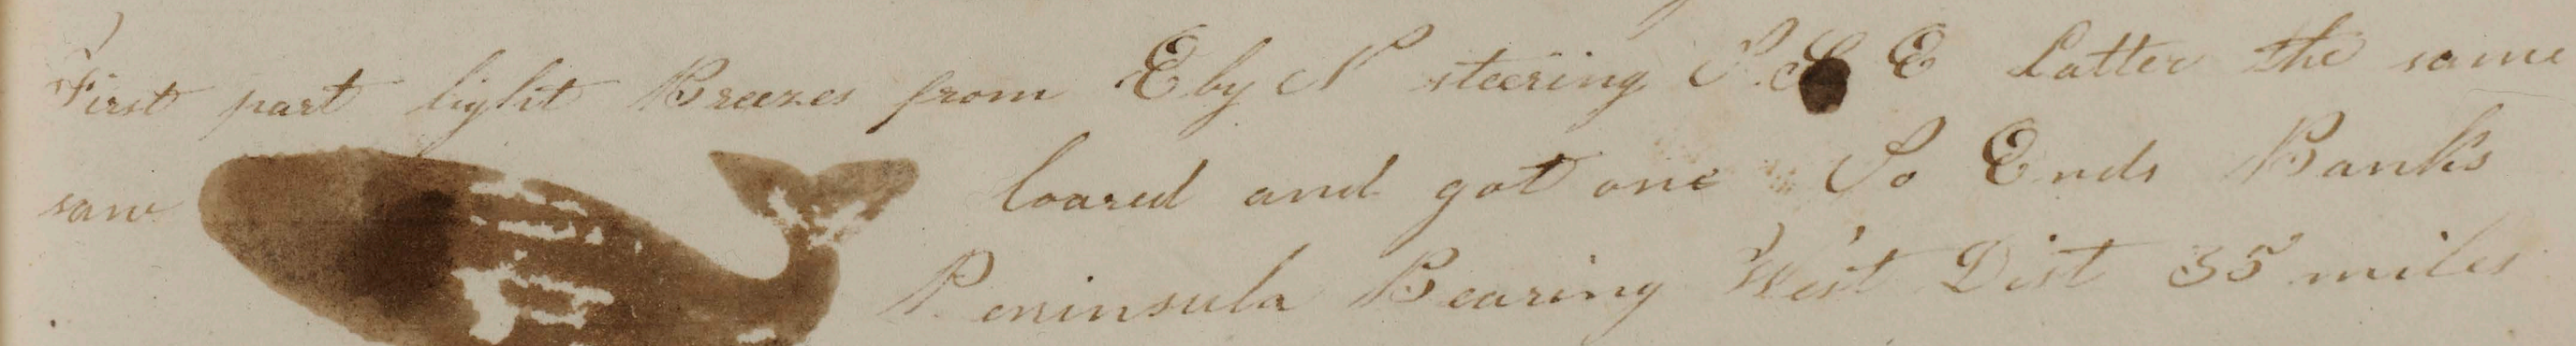 First part light Breezes from E by N steering S.S E Latter the same
saw loared and got one So Ends Banks
Peninsula Bearing West Dist 35 miles